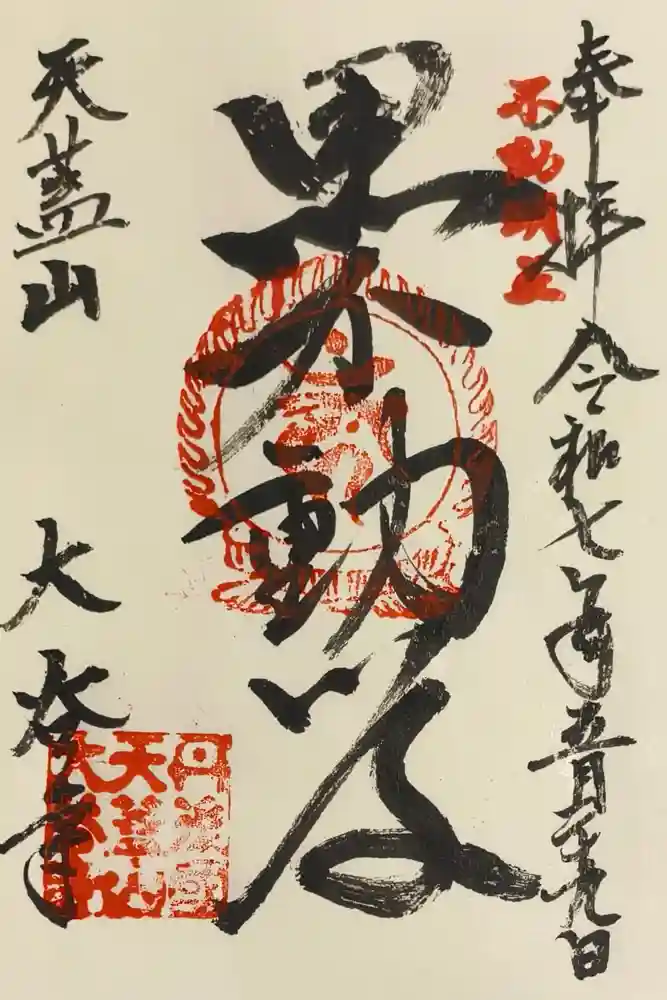 奉拝 令和七年五月二十九日
不動明王
不動
天蓋山 大泰寺
天蓋山
大泰寺